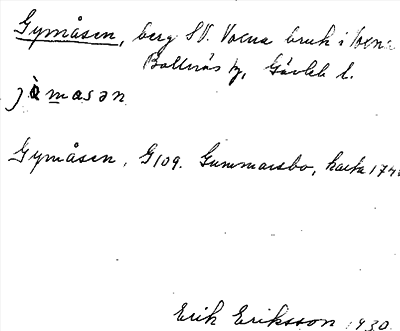 Gymåsen, berg SV. Voxna bruk i Voxna
Bollnäs tg, Gävleb l.
jömasən
Gymåsen, G109. Gummarsbo, karta 174
Erik Eriksson 1930